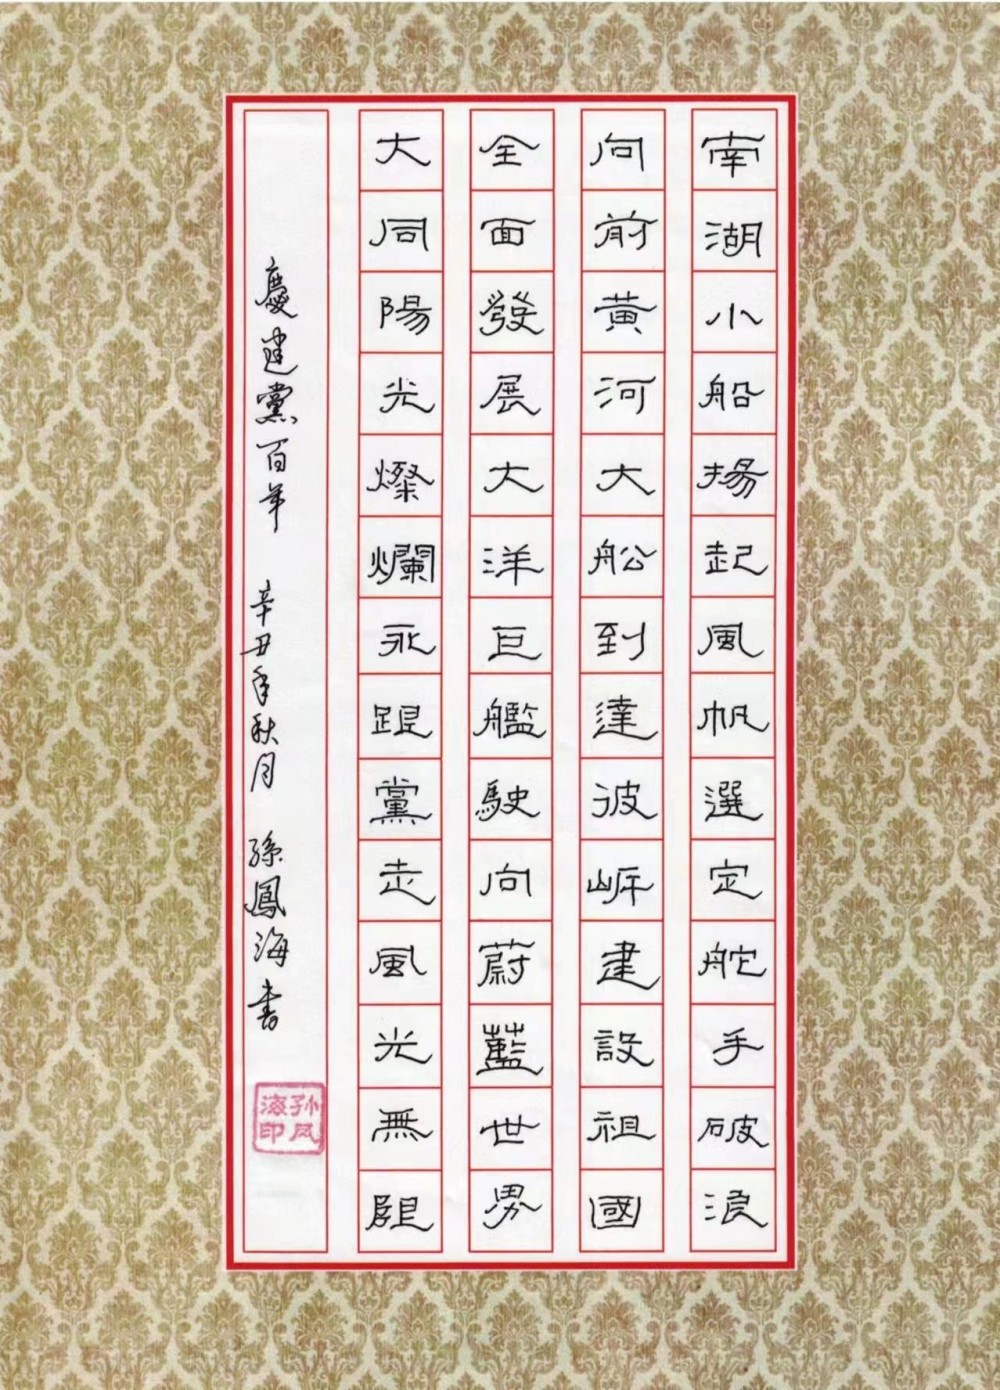 南湖小船揚起風帆選定舵手破浪
向前黃河大船到達彼岸建設祖國
全面發展大洋巨艦駛向蔚藍世界
大同陽光燦爛永跟黨走風光無限
慶建黨百年 辛丑年秋月 孫鳳海書
孙凤海印